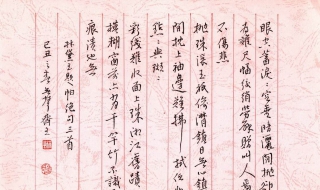 眼空蓄淚々空垂暗灑閒拋卻
為誰尺幅鮫綃勞解贈叫人焉得
不傷悲
拋珠滾玉只偷潸鎮日無心鎮日
閒枕上袖邊難拂拭任他點
點與斑々
彩線難收面上珠湘江舊蹟已
模糊窗前亦有千竿竹不識香
痕漬也無
林黛玉題帕絕句三首
己丑之春